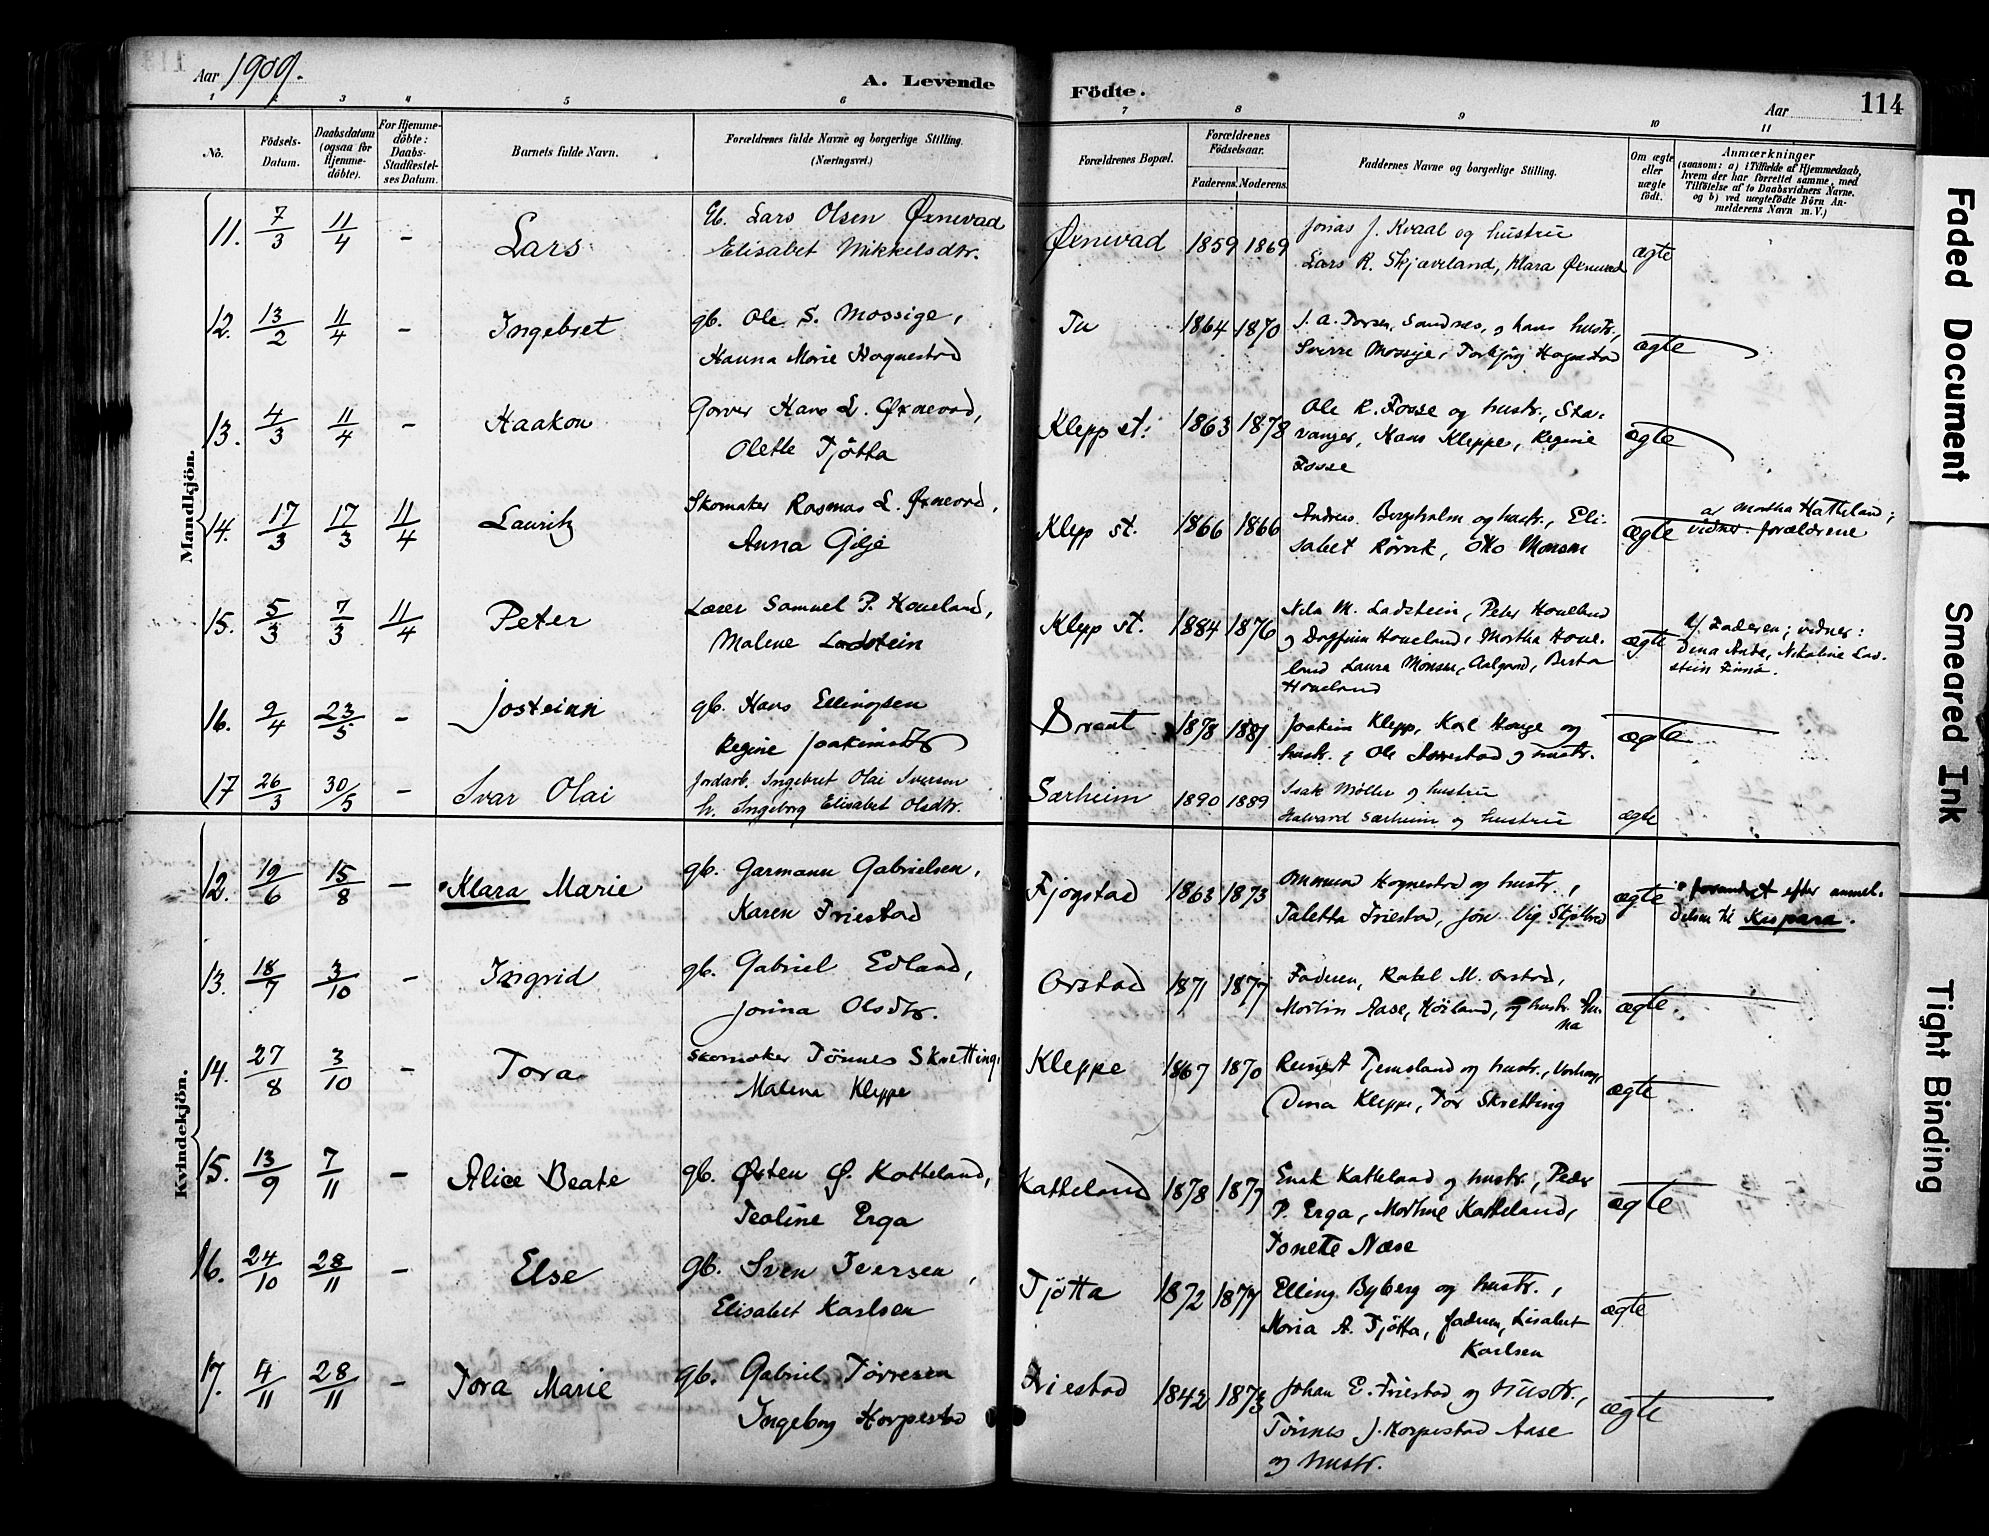 Aar 1909.
A. Levende
Födte.
Aar
114
1 2 3 4 5 6 7 8 9 10 11
No.
Födsels-
Datum.
Daabsdatum
(ogsaa for
Hjemme-
döbte).
For Hjemme-
döbte:
Daabs-
Stadfæstel-
ses Datum.
Barnets fulde Navn.
Forældrenes fulde Navne og borgerlige Stilling.
(Næringsvei.)
Forældrenes Bopæl.
Forældrenes
Födselsaar.
Faderens. Moderens.
Faddernes Navne og borgerlige Stilling.
Om ægte
eller
uægte
födt.
Anmærkninger
(saasom: a) i Tilfælde af Hjemmedaab,
hvem der har forrettet samme, med
Tilföielse af to Daabsvidners Navne,
og b) ved uægtefödte Börn An-
melderens Navn m. V.)
Mandkjön.
11. 7/3 11/4 - Lars
Lars Olsen Øxnevad
Elisabet Mikkelsdtr.
Øxnevad 1859 1869
Jonas J. Kvaal og hustru
Lars R. Skjæveland, Klara Øxnevad
ægte
12. 13/2 11/4 - Ingebret
gb. Ole S. Mossige,
Hanna Marie Hognestad
Tu 1864 1870
J. A. Torsen, Sandnes, og hans hustr.,
Sverre Mossige, Torbjörg Hognestad
ægte
13. 4/3 11/4 - Haakon
Garver Hans L. Øxnevad,
Olette Tjötta
Klepp st. 1863 1878
Ole R. Fosse og hustr., Sta-
vanger, Hans Kleppe, Regine
Fosse
ægte
14. 17/3 17/3 11/4 Lauritz
Skomaker Rasmus L. Øxnevad,
Anna Gilje
Klepp st. 1866 1866
Andreas Bergholm og hustr., Eli-
sabet Rörvik, Otto Monsen
ægte
av Martha Hatteland;
vidner forældrene
15. 5/3 7/3 11/4 Peter
Lærer Samuel P. Haueland,
Malene Ladstein
Klepp st. 1884 1876
Nils M. Ladstein, Peter Haueland
og Dagfinn Haueland, Martha Haue-
land Laura Monsen, Aalgaard, Berta
Haueland
ægte
v/ Faderen; vidner:
Dina Anda, Nikoline Lad-
stein Finnø.
16. 9/4 23/5 - Josteinn
gb. Hans Ellingsen
Regine Joakimsdtr
Braut 1878 1887
Joakim Klepp, Karl Hauge og
hustr. & Ole Torrestad og hustr.
ægte
17 26/3 30/5 - Ivar Olai
Jordarb. Ingebret Olai Iversen
h. Ingeborg Elisabet Olsdtr.
Særheim 1890 1889
Isak Möller og hustru
Halvard Særheim og hustru
ægte
Kvindekjön.
12. 19/6 15/8 - Klara Marie
gb. Garmann Gabrielsen,
Karen Friestad
Fjogstad 1863 1873
Ommund Hognestad og hustr.,
Taletta Friestad, Jön Vig
ægte
forandret efter anmel-
delsen til Kaspara.
13. 18/7 3/10 - Ingrid
gb. Gabriel Edland,
Jorina Olsdtr.
Orstad 1871 1877
Faderen, Rakel M. Orstad,
Martin Aase, Höiland, og hustr.
ægte
14. 27/8 3/10 - Tora
Skomaker Tönnes Skretting,
Malena Kleppe
Kleppe 1867 1870
Reinert Tjemsland og hustr., Varhaug,
Dina Kleppe, Tor Skretting
ægte
15. 13/9 7/11 - Alice Beate
gb. Østen Ø. Katteland,
Teoline Erga
Katteland 1878 1877
Enok Katteland og hustr., Peder
P. Erga, Martine Katteland,
Tonette Næse
ægte
16. 24/10 28/11 - Else
gb. Sven Iversen,
Elisabet Karlsen
Tjötta 1872 1877
Elling Byberg og hustr.,
Maria A. Tjötta, faderen, Lisabet
Karlsen
ægte
17. 4/11 28/11 - Tora Marie
gb. Gabriel Törresen
Ingeborg Horpestad
Friestad 1842 1873
Johan E. Friestad og hustr.,
Tönnes J. Horpestad Aase
og hustr.
ægte
Faded Document
Smeared Ink
Tight Binding